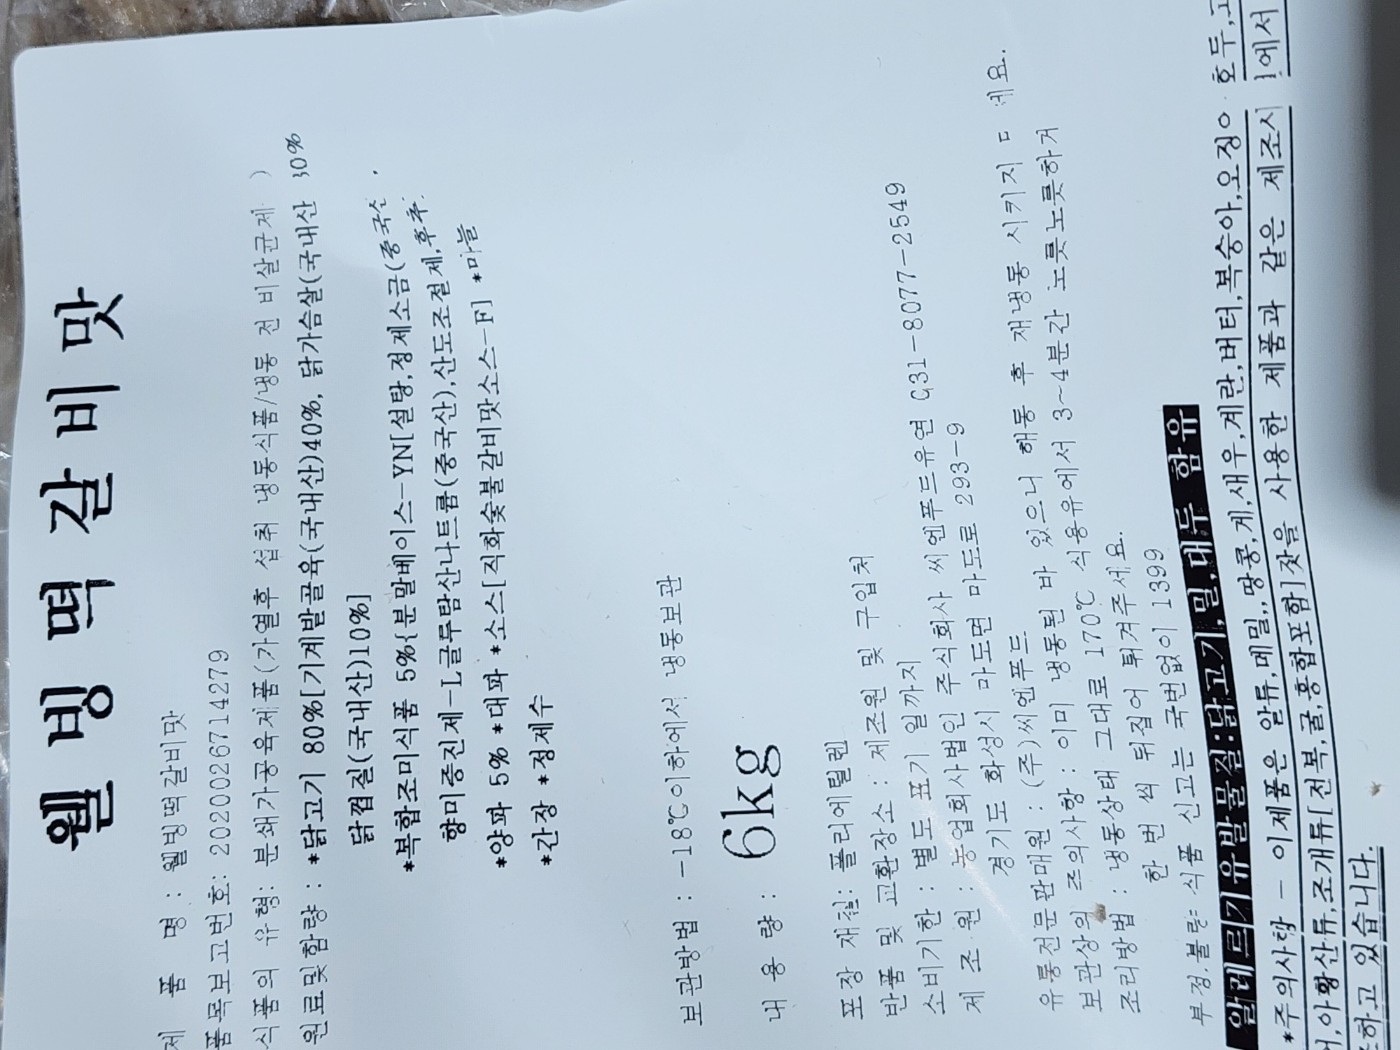 웰빙떡갈비맛
제 품 명 : 웰빙떡갈비맛
품목보고번호: 2020026714279
식품의 유형: 분쇄가공육제품(가열후 섭취 냉동식품/냉동 전 비살균제 )
원료및함량 : *닭고기 80%[기계발골육(국내산)40%, 닭가슴살(국내산 30%
닭껍질(국내산)10%]
*복합조미식품 5%{분말베이스-YN[설탕,정제소금(중국산
향미증진제-L글루탐산나트륨(중국산),산도조절제,후추
*양파 5% *대파 *소스[직화숯불갈비맛소스-F] *마늘
*간장 *정제수
보관방법 : -18℃이하에서 냉동보관
내 용 량 : 6kg
포장 재질: 폴리에틸렌
반품 및 교환장소 : 제조원 및 구입처
소비기한 : 별도 표기 일까지
제 조 원 : 농업회사법인 주식회사 씨엔푸드유연 031-8077-2549
경기도 화성시 마도면 마도로 293-9
유통전문판매원 : (주)씨엔푸드
보관상의 주의사항 : 이미 냉동된 바 있으니 해동 후 재냉동 시키지 세요.
조리방법 : 냉동상태 그대로 170℃ 식용유에서 3~4분간 노릇노릇하게
한 번 씩 뒤집어 튀겨주세요.
부정.불량 식품 신고는 국번없이 1399
알레르기유발물질:닭고기,밀,대두 함유
*주의사항 - 이제품은 알류,메밀,,땅콩,게,새우,계란,버터,복숭아, 호두,
,아황산류,조개류[전복,굴,홍합포함]잣을 사용한 제품과 같은 제조시 에서
하고 있습니다.